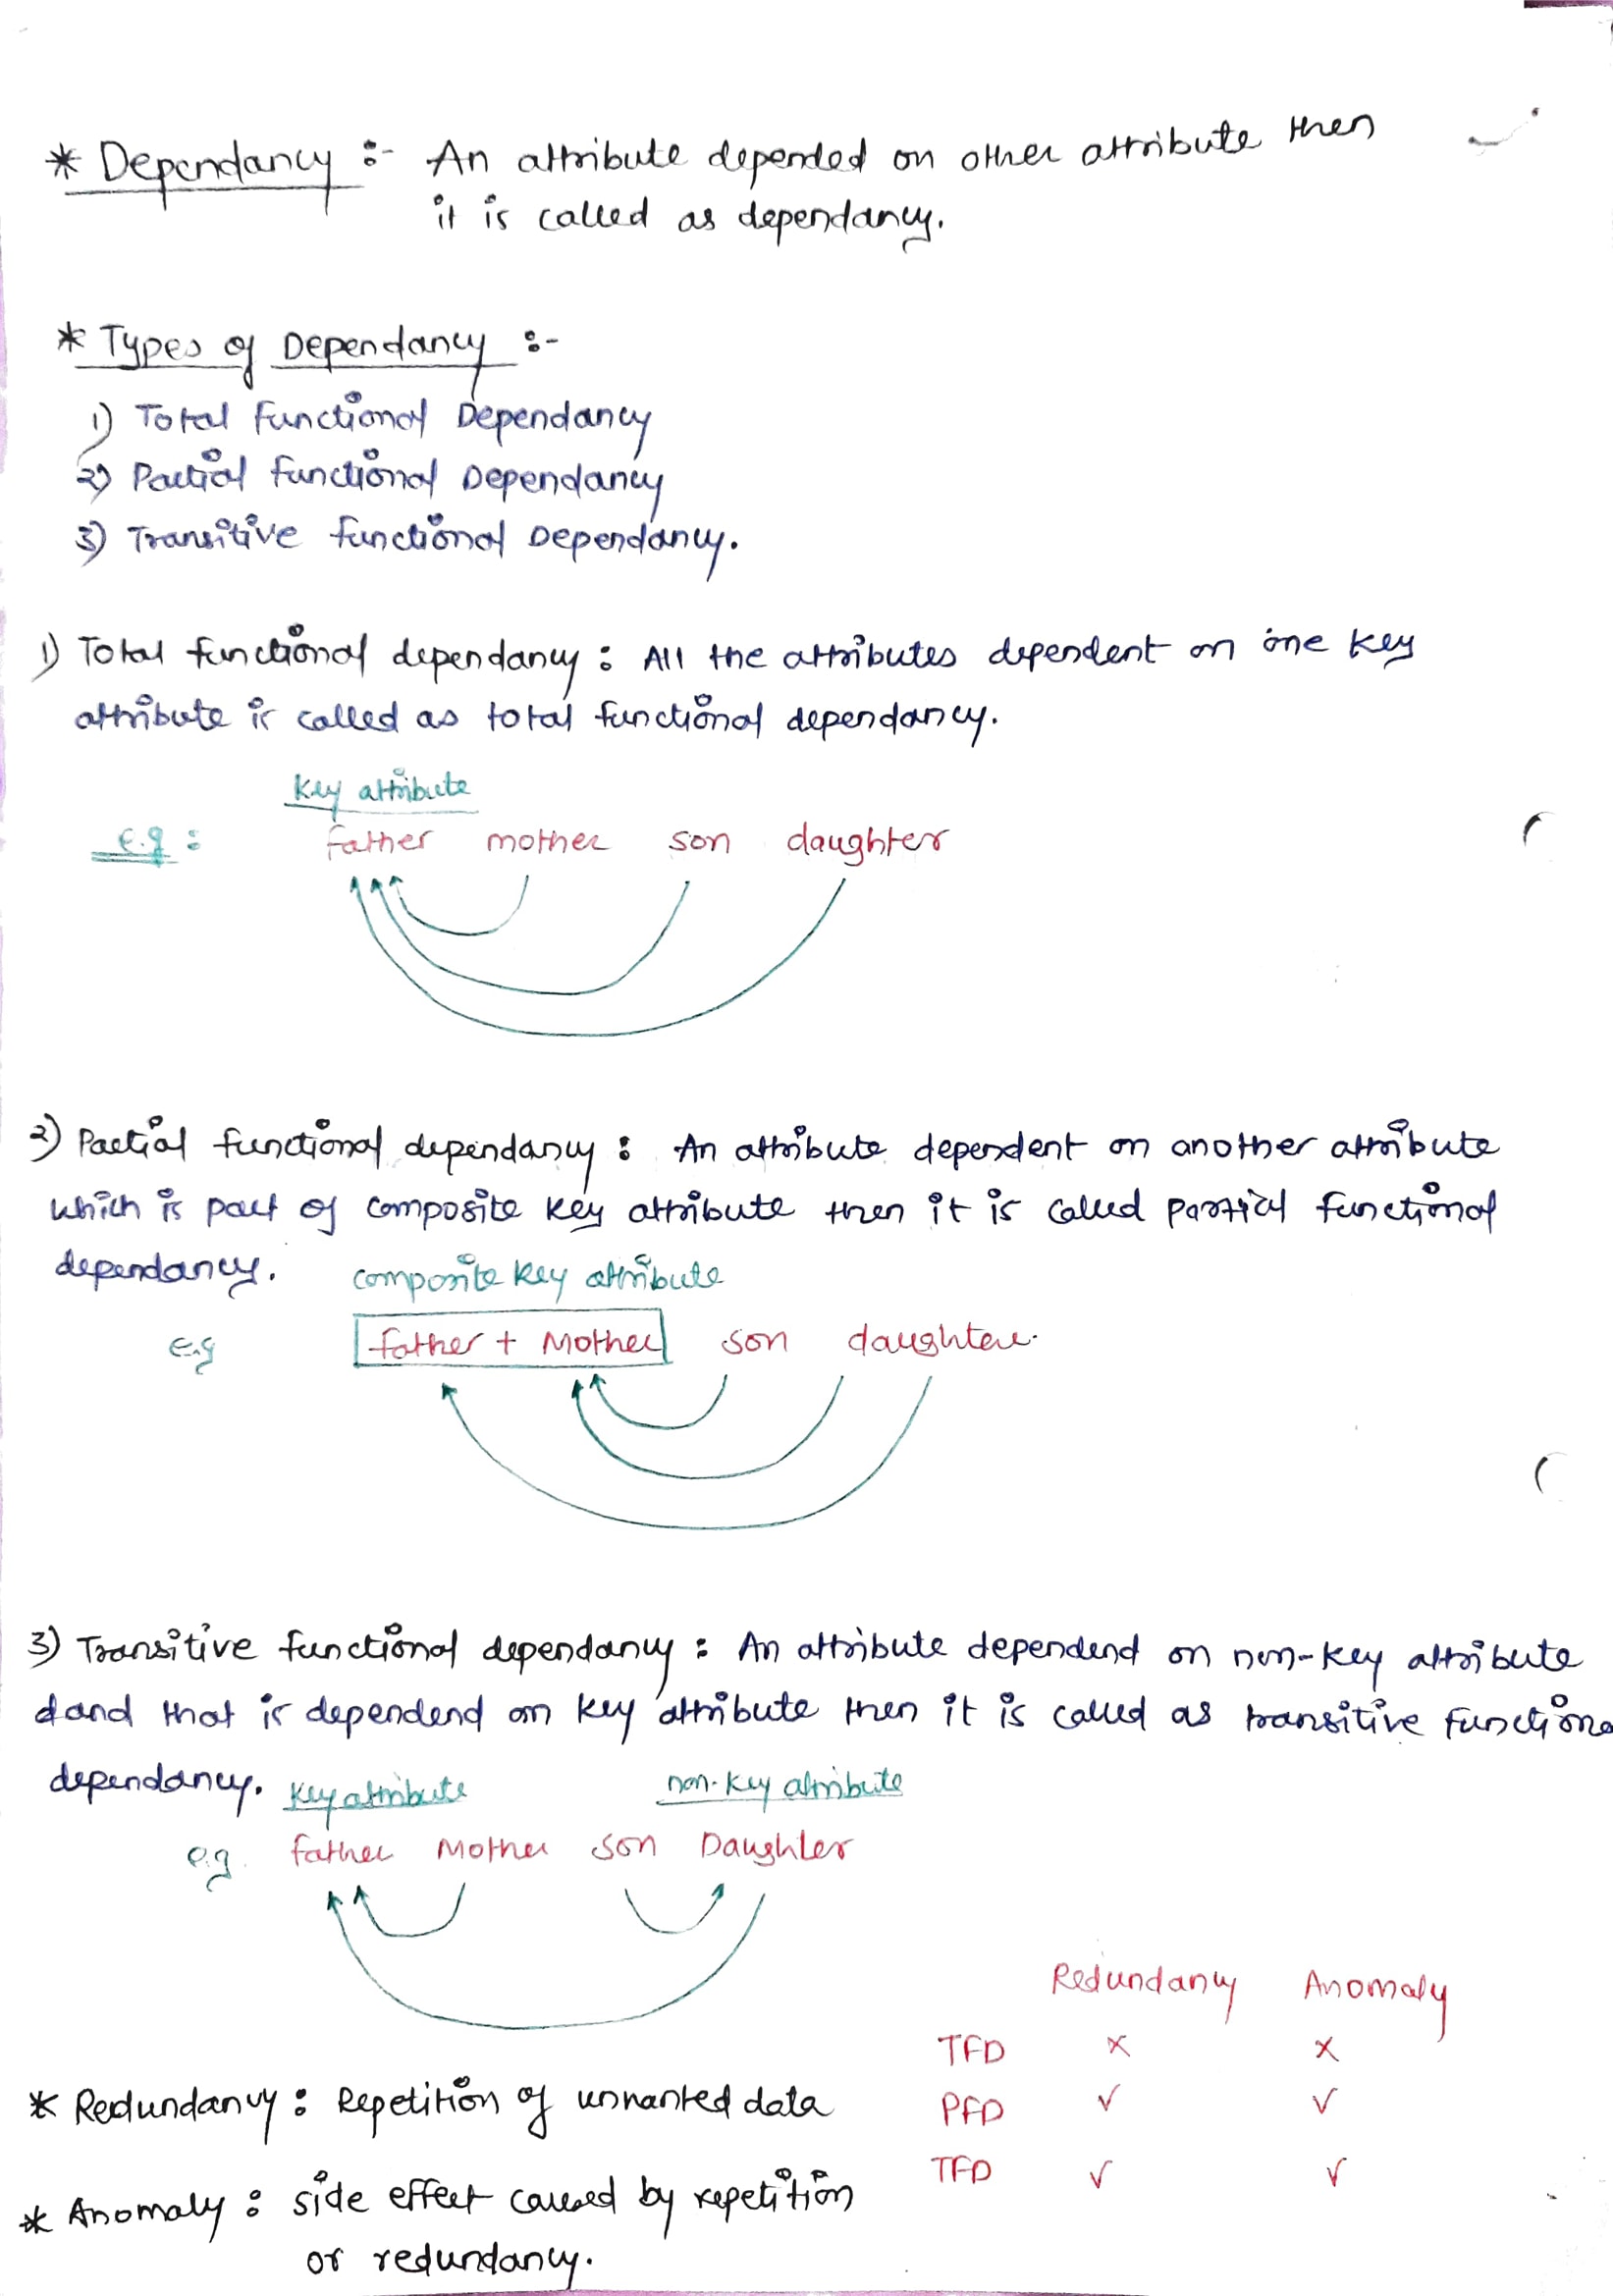 * Dependancy :- An attribute depended on other attribute then
it is called as dependancy.
* Types of Dependancy :-
1) Total functional Dependancy
2) Partial functional Dependancy
3) Transitive functional Dependancy.
1) Total functional dependancy : All the attributes dependent on one key
attribute is called as total functional dependancy.
Key attribute
e.g : father mother son daughter
2) Partial functional dependancy : An attribute dependent on another attribute
which is part of composite key attribute then it is called partial functional
dependancy. composite key attribute
e.g father + Mother son daughter.
3) Transitive functional dependancy : An attribute dependend on non-key attribute
dand that is dependend on key attribute then it is called as transitive functiona
dependancy. Key attribute non-key attribute
e.g. father Mother son Daughter
Redundancy Anomaly
TFD x x
* Redundancy : Repetition of unwanted data
PFD ✓ ✓
TFD ✓ ✓
* Anomaly : side effect caused by repetition
or redundancy.